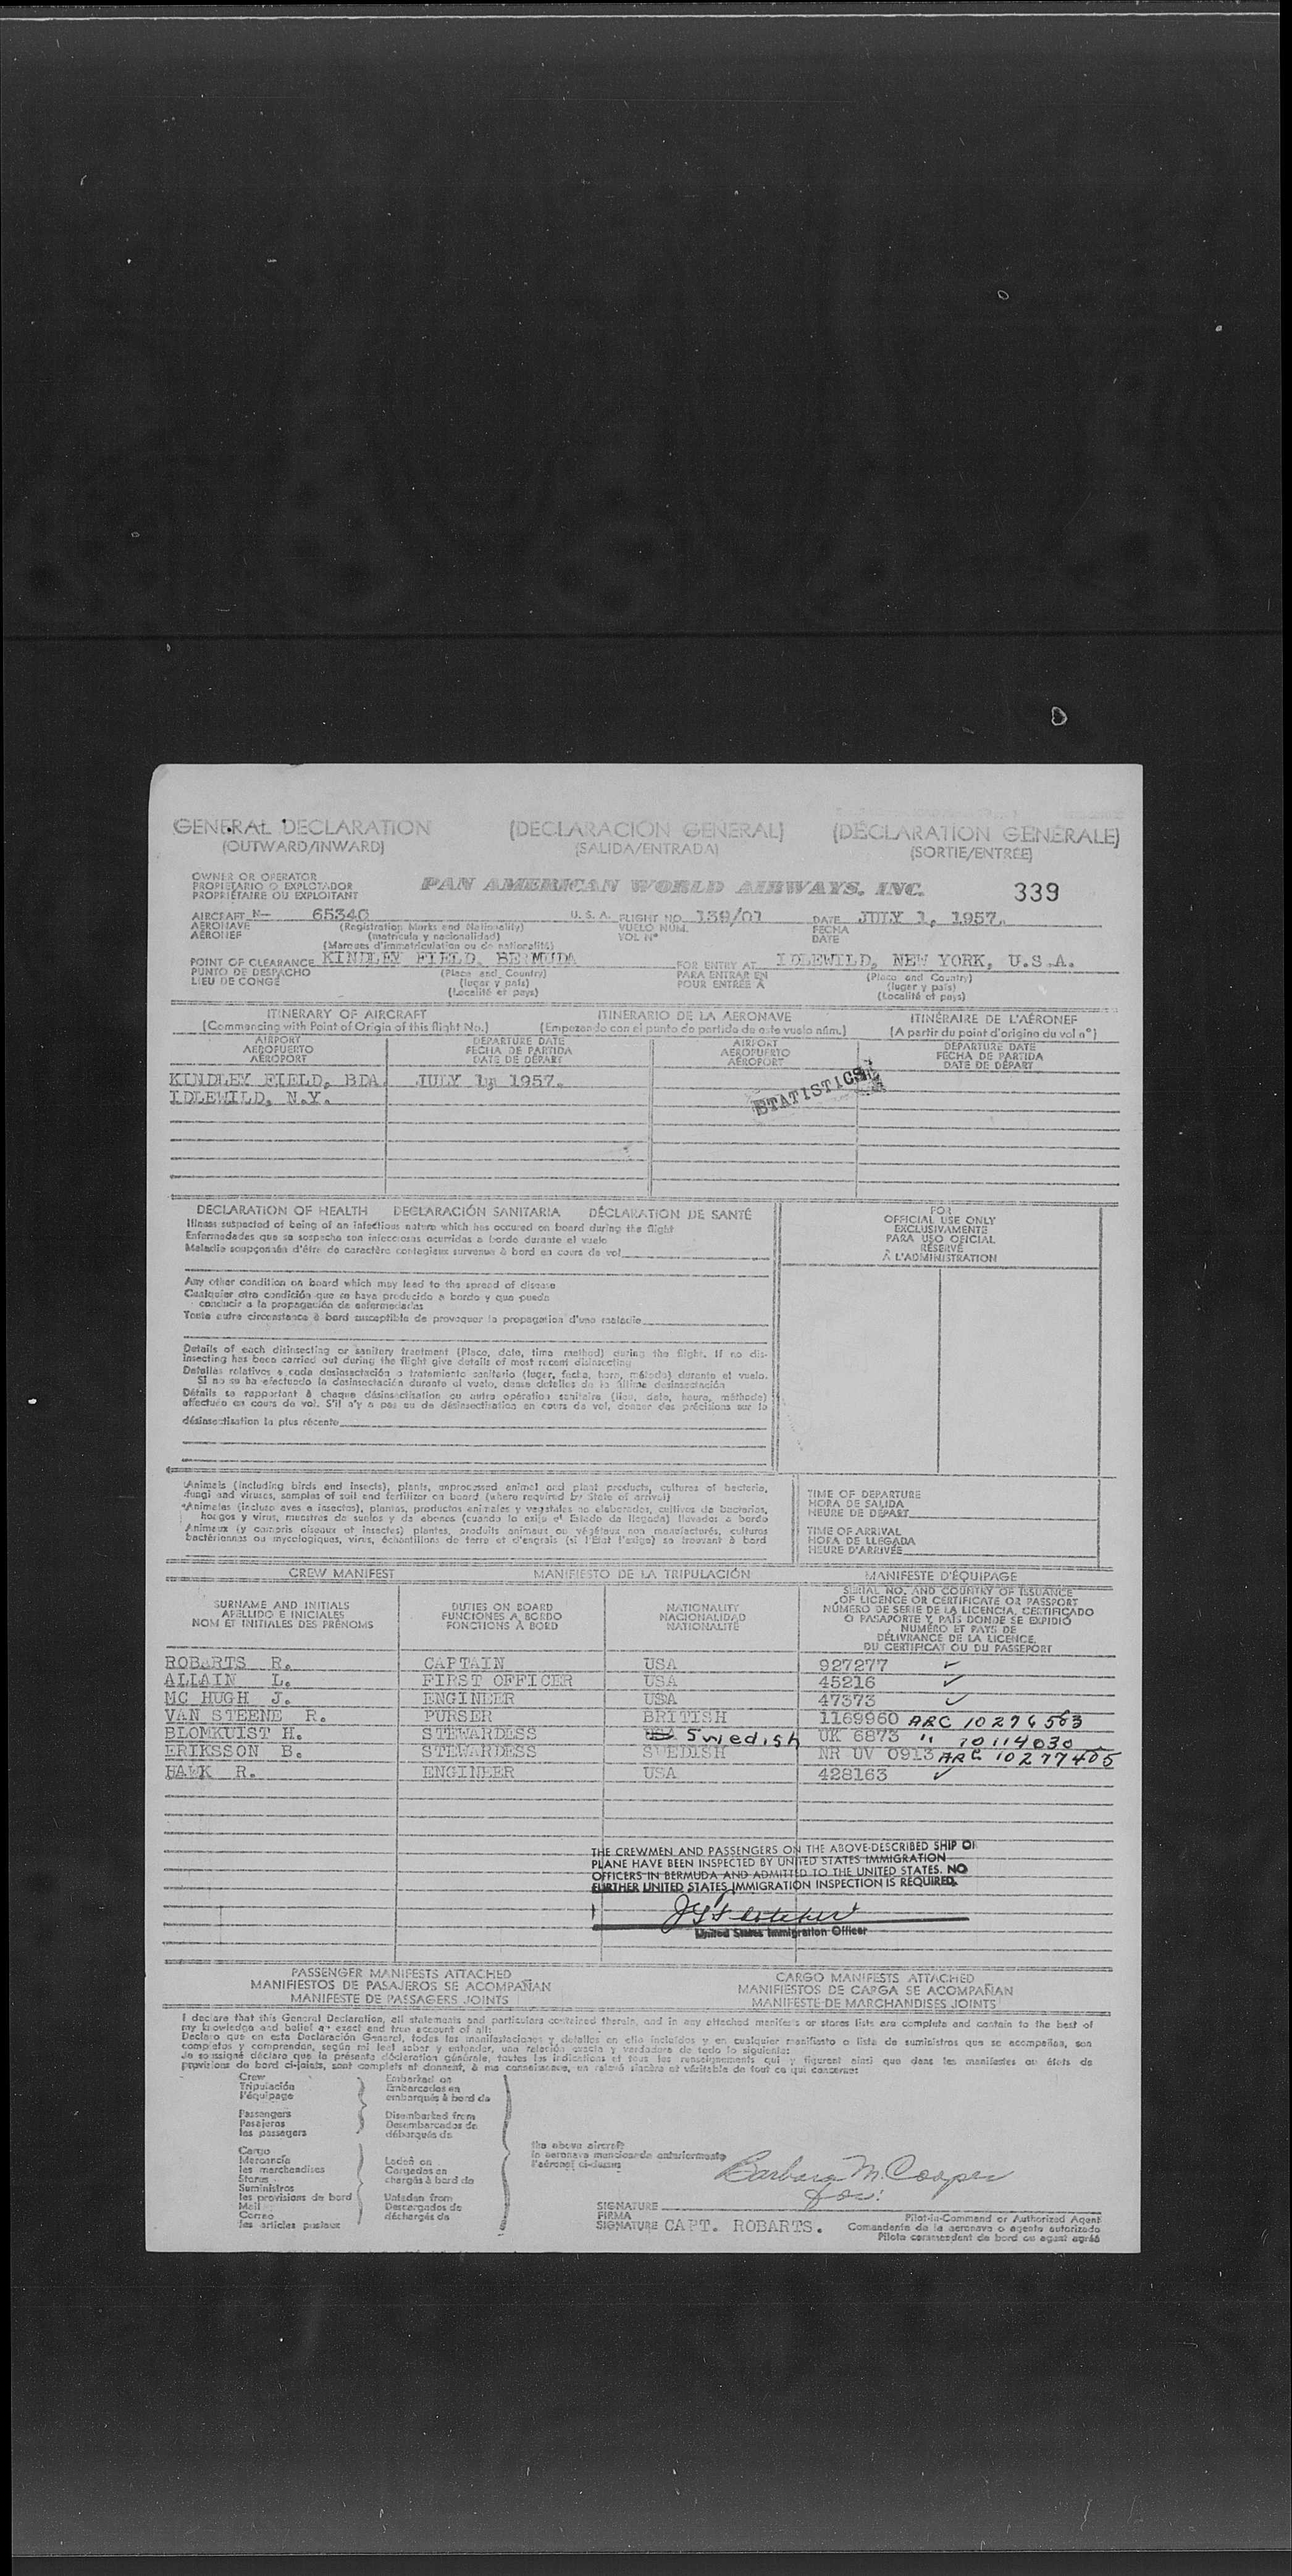 GENERAL DECLARATION (DECLARACIÓN GENERAL) (DÉCLARATION GÉNÉRALE)
(OUTWARD/INWARD) (SALIDA/ENTRADA) (SORTIE/ENTRÉE)
OWNER OR OPERATOR
PROPIETARIO O EXPLOTADOR
PROPRIÉTAIRE OU EXPLOITANT
PAN AMERICAN WORLD AIRWAYS, INC. 339
AIRCRAFT N- 65340 U. S. A. FLIGHT NO. 139/01 DATE JULY 1, 1957.
AERONAVE (Registration Marks and Nationality) VUELO NÚM. FECHA
AÉRONEF (matrícula y nacionalidad) VOL Nº DATE
(Marques d'immatriculation ou de nationalité)
POINT OF CLEARANCE KINDLEY FIELD, BERMUDA FOR ENTRY AT IDLEWILD, NEW YORK, U.S.A.
PUNTO DE DESPACHO (Place and Country) PARA ENTRAR EN (Place and Country)
LIEU DE CONGÉ (lugar y país) POUR ENTRÉE À (lugar y país)
(Localité et pays) (Localité et pays)
ITINERARY OF AIRCRAFT ITINERARIO DE LA AERONAVE ITINÉRAIRE DE L'AÉRONEF
(Commencing with Point of Origin of this flight No.) (Empezando con el punto de partida de este vuelo núm.) (A partir du point d'origine du vol nº)
AIRPORT DEPARTURE DATE AIRPORT DEPARTURE DATE
AEROPUERTO FECHA DE PARTIDA AEROPUERTO FECHA DE PARTIDA
AÉROPORT DATE DE DÉPART AÉROPORT DATE DE DÉPART
KINDLEY FIELD, BDA. JULY 1, 1957.
IDLEWILD, N.Y.
STATISTICS
DECLARATION OF HEALTH DECLARACIÓN SANITARIA DÉCLARATION DE SANTÉ
Illness suspected of being of an infectious nature which has occured on board during the flight
Enfermedades que se sospecha son infecciosas ocurridas a bordo durante el vuelo
Maladie soupçonnée d'être de caractère contagieux survenue à bord en cours de vol
FOR
OFFICIAL USE ONLY
EXCLUSIVAMENTE
PARA USO OFICIAL
RÉSERVÉ
À L'ADMINISTRATION
Any other condition on board which may lead to the spread of disease
Cualquier otra condición que se haya producido a bordo y que pueda
conducir a la propagación de enfermedades
Toute autre circonstance à bord susceptible de provoquer la propagation d'une maladie
Details of each disinsecting or sanitary treatment (Place, date, time method) during the flight. If no dis-
insecting has been carried out during the flight give details of most recent disinsecting
Detalles relativos a cada desinsectación o tratamiento sanitario (lugar, fecha, hora, método) durante el vuelo.
Si no se ha efectuado la desinsectación durante el vuelo, dense detalles de la última desinsectación
Détails se rapportant à chaque désinsectisation ou autre opération sanitaire (lieu, date, heure, méthode)
effectuée en cours de vol. S'il n'y a pas eu de désinsectisation en cours de vol, donner des précisions sur la
désinsectisation la plus récente
Animals (including birds and insects), plants, unprocessed animal and plant products, cultures of bacteria,
fungi and viruses, samples of soil and fertilizer on board (where required by State of arrival)
Animales (incluso aves e insectos), plantas, productos animales y vegetales no elaborados, cultivos de bacterias,
hongos y virus, muestras de suelos y de abonos (cuando lo exija el Estado de llegada) llevados a bordo
Animaux (y compris oiseaux et insectes) plantes, produits animaux ou végétaux non manufacturés, cultures
bactériennes ou mycologiques, virus, échantillons de terre et d'engrais (si l'État l'exige) se trouvant à bord
TIME OF DEPARTURE
HORA DE SALIDA
HEURE DE DÉPART
TIME OF ARRIVAL
HORA DE LLEGADA
HEURE D'ARRIVÉE
CREW MANIFEST MANIFIESTO DE LA TRIPULACIÓN MANIFESTE D'ÉQUIPAGE
SURNAME AND INITIALS
APELLIDO E INICIALES
NOM ET INITIALES DES PRÉNOMS
DUTIES ON BOARD
FUNCIONES A BORDO
FONCTIONS À BORD
NATIONALITY
NACIONALIDAD
NATIONALITÉ
SERIAL NO. AND COUNTRY OF ISSUANCE
OF LICENCE OR CERTIFICATE OR PASSPORT
NÚMERO DE SERIE DE LA LICENCIA, CERTIFICADO
O PASAPORTE Y PAÍS DONDE SE EXPIDIÓ
NUMÉRO ET PAYS DE
DÉLIVRANCE DE LA LICENCE,
DU CERTIFICAT OU DU PASSEPORT
ROBARTS R. CAPTAIN USA 927277 ✓
ALLAIN L. FIRST OFFICER USA 45216 ✓
MC HUGH J. ENGINEER USA 47373 ✓
VAN STEENE R. PURSER BRITISH 1169960 ARC 10276563
BLOMKUIST H. STEWARDESS Swedish UK 6873 " 10114030
ERIKSSON B. STEWARDESS SWEDISH NR UV 0913 ARC 10277405
HAWK R. ENGINEER USA 428163 ✓
THE CREWMEN AND PASSENGERS ON THE ABOVE-DESCRIBED SHIP OR
PLANE HAVE BEEN INSPECTED BY UNITED STATES IMMIGRATION
OFFICERS IN BERMUDA AND ADMITTED TO THE UNITED STATES. NO
FURTHER UNITED STATES IMMIGRATION INSPECTION IS REQUIRED.
United States Immigration Officer
PASSENGER MANIFESTS ATTACHED CARGO MANIFESTS ATTACHED
MANIFIESTOS DE PASAJEROS SE ACOMPAÑAN MANIFIESTOS DE CARGA SE ACOMPAÑAN
MANIFESTE DE PASSAGERS JOINTS MANIFESTE DE MARCHANDISES JOINTS
I declare that this General Declaration, all statements and particulars contained therein, and in any attached manifests or stores lists are complete and contain to the best of
my knowledge and belief an exact and true account of all:
Declaro que en esta Declaración General, todas las manifestaciones y detalles en ella incluídos y en cualquier manifiesto o lista de suministros que se acompañan, son
completos y comprenden, según mi leal saber y entender, una relación exacta y verdadera de todo lo siguiente:
Je soussigné déclare que la présente déclaration générale, toutes les indications et tous les renseignements qui y figurent ainsi que dans les manifestes ou états de
provisions de bord ci-joints, sont complets et donnent, à ma connaissance, un relevé sincère et véritable de tout ce qui concerne:
Crew
Tripulación
l'équipage
Passengers
Pasajeros
les passagers
Cargo
Mercancía
les marchandises
Stores
Suministros
les provisions de bord
Mail
Correo
les articles postaux
Embarked on
Embarcados en
embarqués à bord de
Disembarked from
Desembarcados de
débarqués de
Laden on
Cargados en
chargés à bord de
Unladen from
Descargados de
déchargés de
the above aircraft
la aeronave mencionada anteriormente
l'aéronef ci-dessus
Barbara M. Cooper
for:
SIGNATURE
FIRMA
SIGNATURE CAPT. ROBARTS.
Pilot-in-Command or Authorized Agent
Comandante de la aeronave o agente autorizado
Pilote commandant de bord ou agent agréé